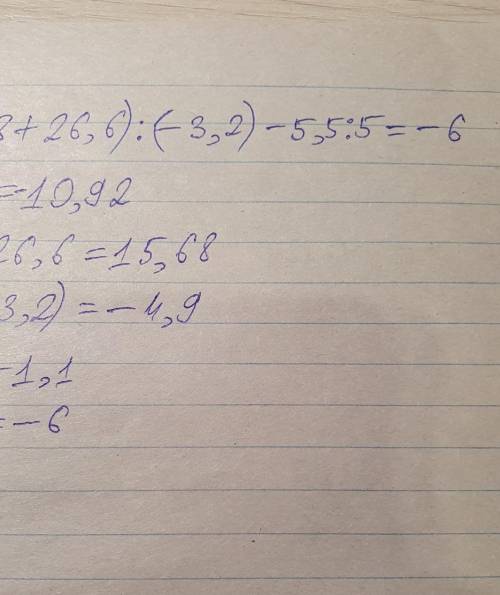 8+26,6):(-3,2)-5,5:5=-6
=-10,92
26,6=15,68
3,2)=-4,9
-1,1
=-6